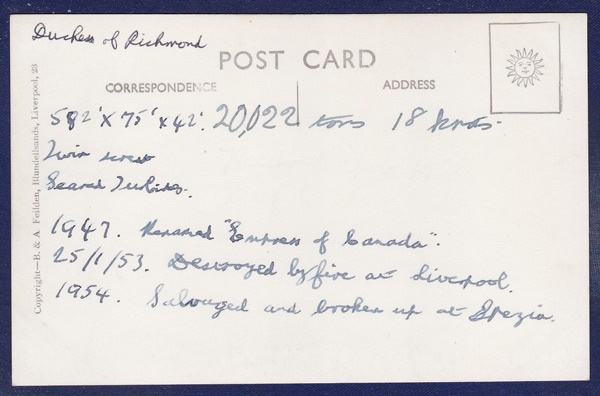 Duchess of Richmond
POST CARD
CORRESPONDENCE
ADDRESS
582' X 75' X 42'. 20,022 tons 18 knots.
Twin screw
Geared Turbines.
1947. Renamed "Empress of Canada".
25/1/53. Destroyed by fire at Liverpool.
1954. Salvaged and broken up at Spezia.
Copyright—B. & A. Feilden, Blundellsands, Liverpool, 23